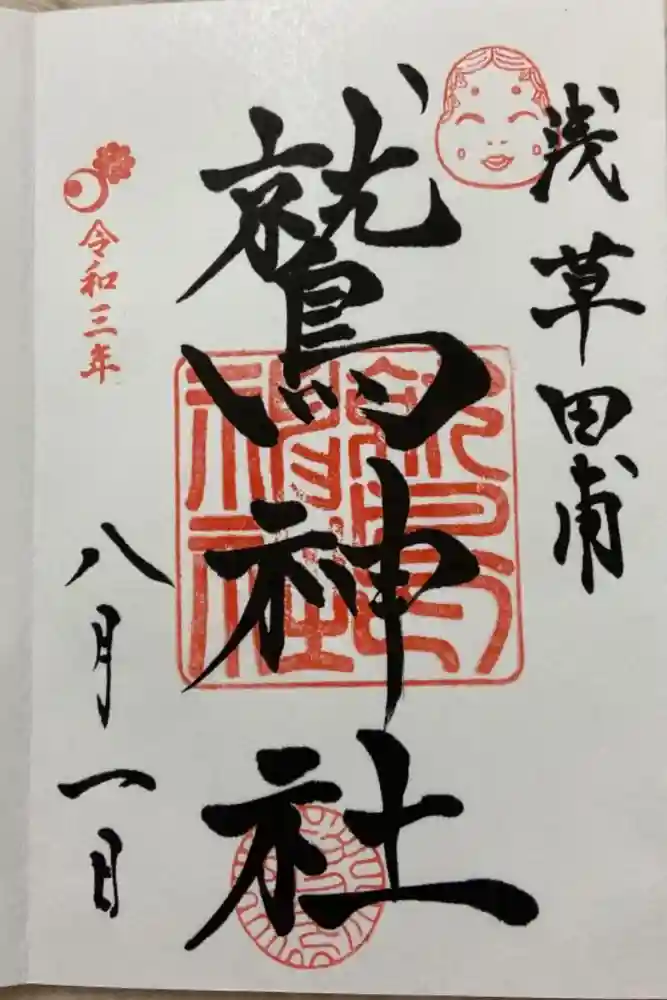 浅草田甫
鷲神社
令和三年
八月一日
鷲神社